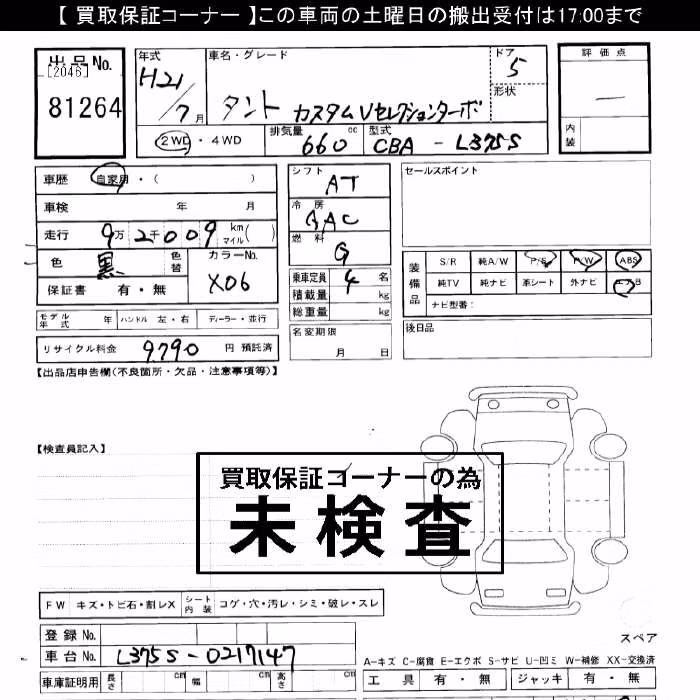 【 買取保証コーナー 】この車両の土曜日の搬出受付は17:00まで
出品No.
[2046]
81264
年式
H21/7月
車名・グレード
タント カスタムVセレクションターボ
ドア
5
形状
2WD・4WD
排気量
660cc
型式
CBA - L375S
評価点
―
内装
車歴 自家用・( )
車検 年 月
走行 9万2千009 km マイル( )
色 黒 色替
カラーNo.
X06
保証書 有・無
シフト
AT
冷房
AAC
燃料
G
乗車定員 4 名
積載量 kg
総重量 kg
名変期限
月 日
セールスポイント
装備品
S/R 純A/W P/S P/W ABS
純TV 純ナビ 革シート 外ナビ エアB
ナビ型番:
後日品
モデル年式 年 ハンドル 左・右 ディーラー・並行
リサイクル料金 9790 円 預託済
【出品店申告欄(不良箇所・欠品・注意事項等)】
【検査員記入】
買取保証コーナーの為
未検査
FW キズ・トビ石・割レX シート内装 コゲ・穴・汚レ・シミ・破レ・スレ
登録 No.
車台 No. L375S-0217147
車庫証明用 長さ cm 幅 cm 高さ cm
スペア
A-キズ C-腐食 E-エクボ S-サビ U-凹ミ W-補修 XX-交換済
工具 有・無 ジャッキ 有・無